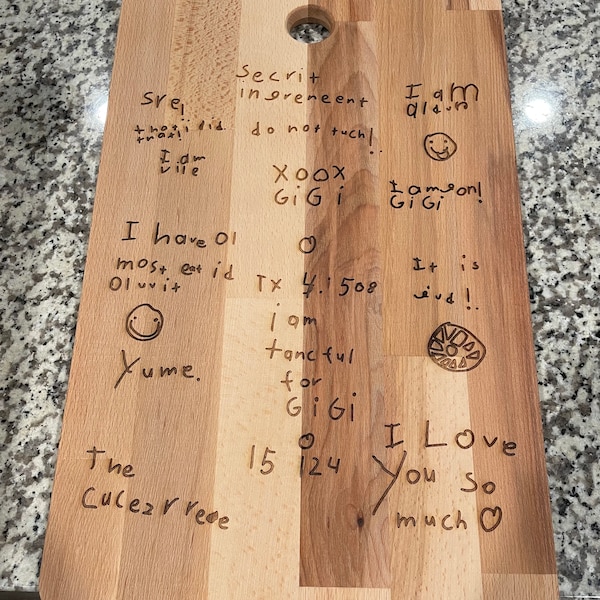 Secrit
ingreneent
do not tuch!
XOOX
GiGi
TX 4.1508
i am
tancful
for
GiGi
15 124
srel
that i did
that!
I am
I have ol
most eat id
oluvit
Yume.
The
I am
I am son!
GiGi
It is
I Love
You so
much